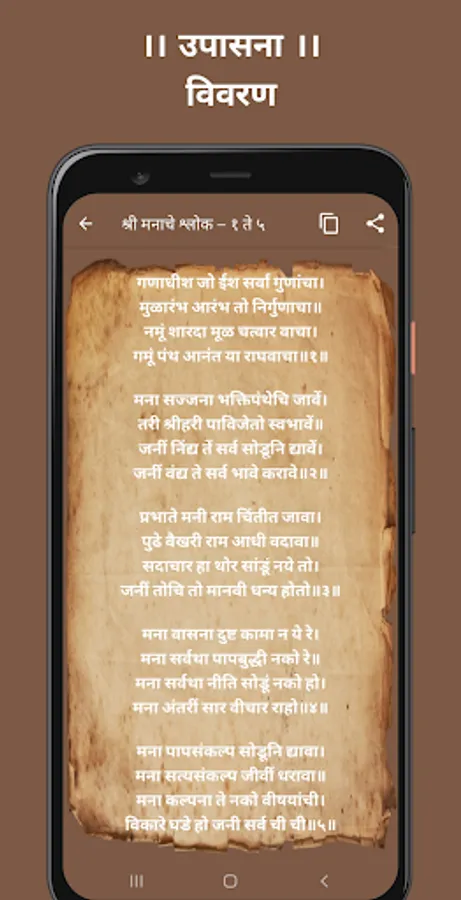 ।। उपासना ।।
विवरण
श्री मनाचे श्लोक – १ ते ५
गणाधीश जो ईश सर्वां गुणांचा।
मुळारंभ आरंभ तो निर्गुणाचा॥
नमूं शारदा मूळ चत्वार वाचा।
गमूं पंथ आनंत या राघवाचा॥१॥
मना सज्जना भक्तिपंथेचि जावें।
तरी श्रीहरी पाविजेतो स्वभावें॥
जनीं निंद्य तें सर्व सोडूनि द्यावें।
जनीं वंद्य ते सर्व भावे करावे॥२॥
प्रभाते मनी राम चिंतीत जावा।
पुढे वैखरी राम आधी वदावा॥
सदाचार हा थोर सांडूं नये तो।
जनीं तोचि तो मानवी धन्य होतो॥३॥
मना वासना दुष्ट कामा न ये रे।
मना सर्वथा पापबुद्धी नको रे॥
मना सर्वथा नीति सोडूं नको हो।
मना अंतरीं सार वीचार राहो॥४॥
मना पापसंकल्प सोडूनि द्यावा।
मना सत्यसंकल्प जीवीं धरावा॥
मना कल्पना ते नको वीषयांची।
विकारे घडे हो जनी सर्व ची ची॥५॥